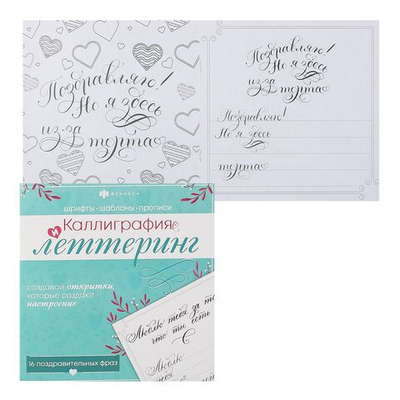 Поздравляю!
Но я здесь
из-за
торта
Поздравляю!
Но я здесь
из-за
торта
Поздравляю!
Но я здесь
торта
ФЕНИКС+
шрифты • шаблоны • прописи
Каллиграфия
и
леттеринг
создавай открытки,
которые создают
настроение
16 поздравительных фраз
Люблю тебя за то,
что ты есть
Люблю
тебя за